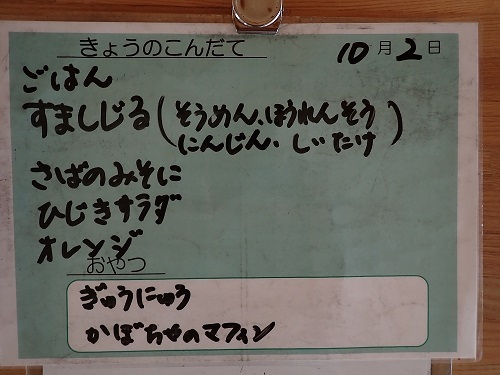 きょうのこんだて 10月2日
ごはん
すましじる(そうめん、ほうれんそう
にんじん、しいたけ)
さばのみそに
ひじきサラダ
オレンジ
おやつ
ぎゅうにゅう
かぼちゃのマフィン